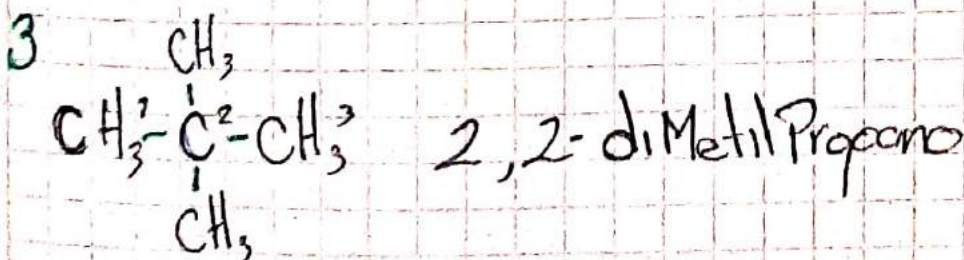 3 CH₃
CH₃¹-C²-CH₃³ 2,2-diMetilPropano
CH₃